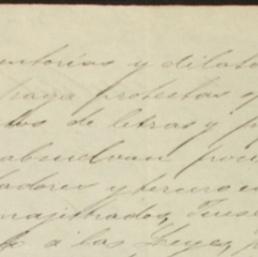 entorias y dilato
haga protestas y
tos de letras y p
absuelvan posic
tadores y terceros
majistrados, Jues
a las Leyes, p